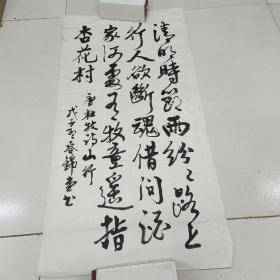 清明時節雨紛〻路上
行人欲斷魂借問酒
家何處有牧童遥指
杏花村
唐杜牧詩山行
戊子年春錦堂书